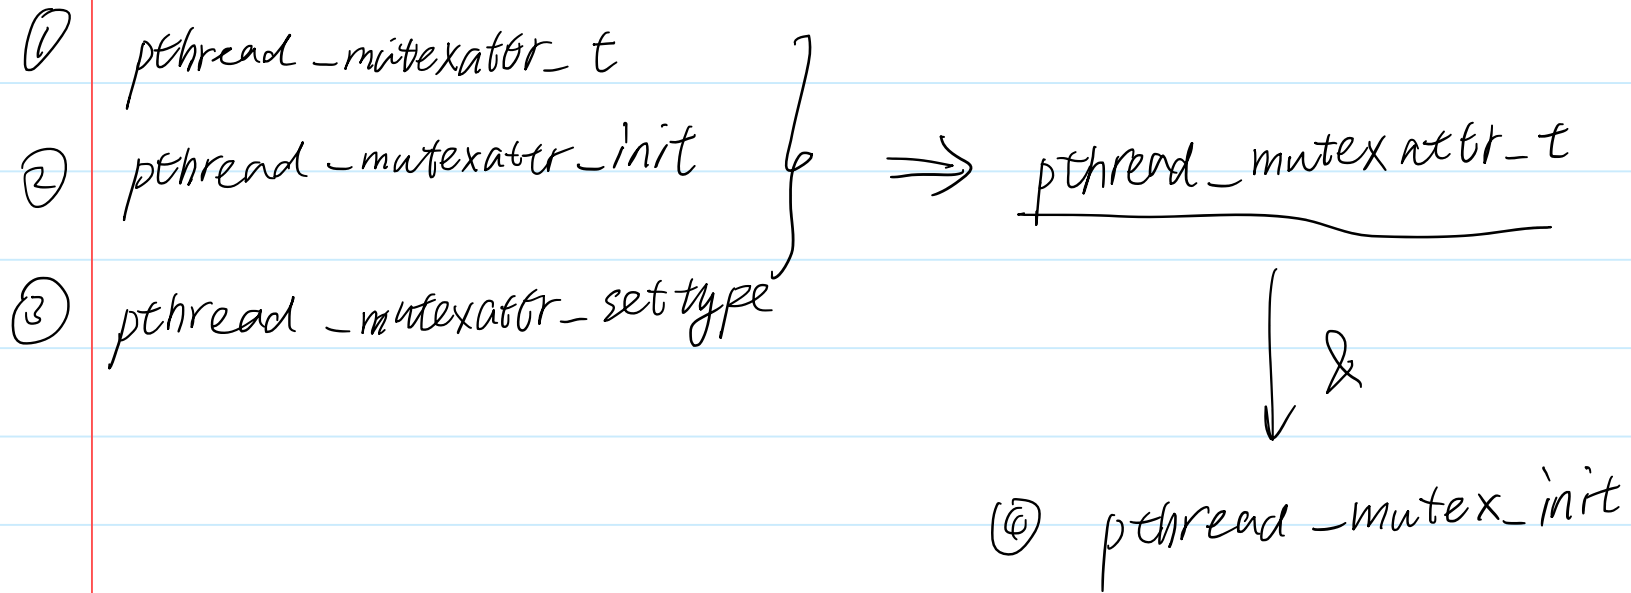 ① pthread_mutexattr_t
② pthread_mutexattr_init
③ pthread_mutexattr_settype
⇒ pthread_mutexattr_t
↓ &
④ pthread_mutex_init